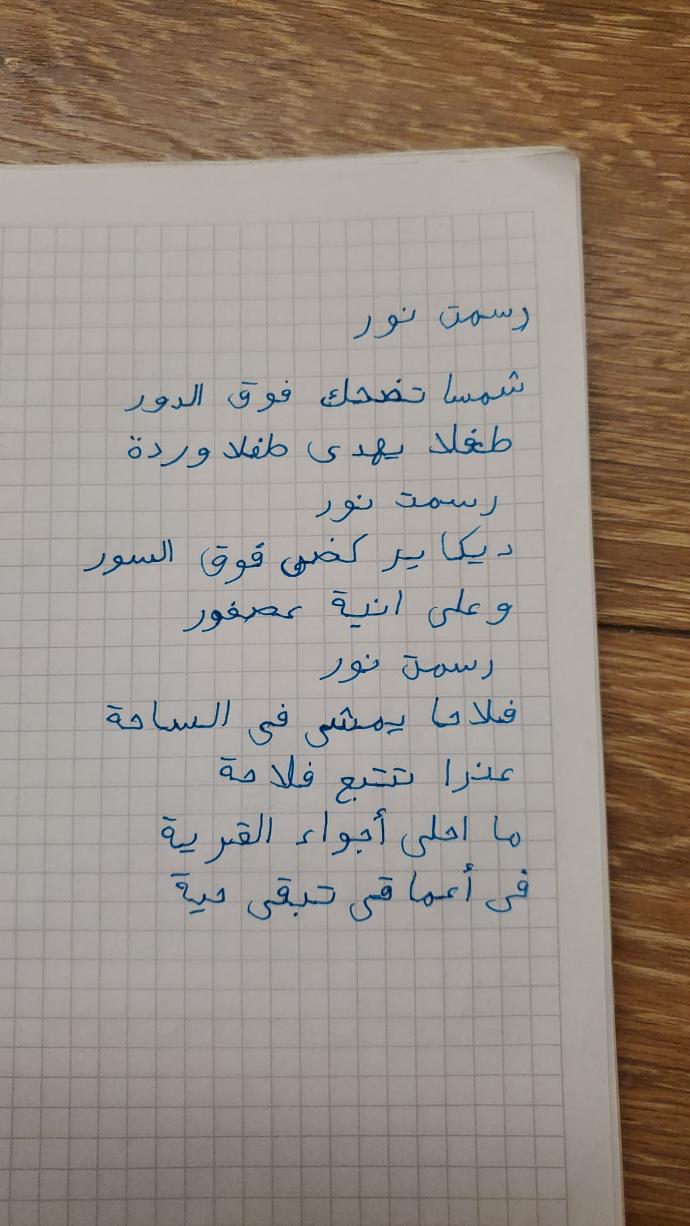 رسمت نور
شمسا تضحك فوق الدور
طفلا يهدى طفلا وردة
رسمت نور
ديكا يركض فوق السور
وعلى انية عصفور
رسمت نور
فلاحا يمشى فى الساحة
عنزا تتبع فلاحة
ما احلى أجواء القرية
فى أعماقى تبقى حية